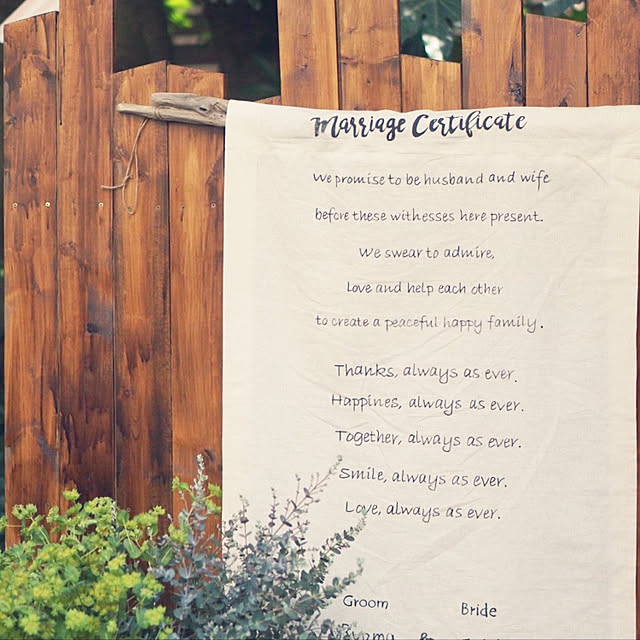 Marriage Certificate
We promise to be husband and wife
before these withesses here present.
We swear to admire,
Love and help each other
to create a peaceful happy family.
Thanks, always as ever.
Happines, always as ever.
Together, always as ever.
Smile, always as ever.
Love, always as ever.
Groom Bride